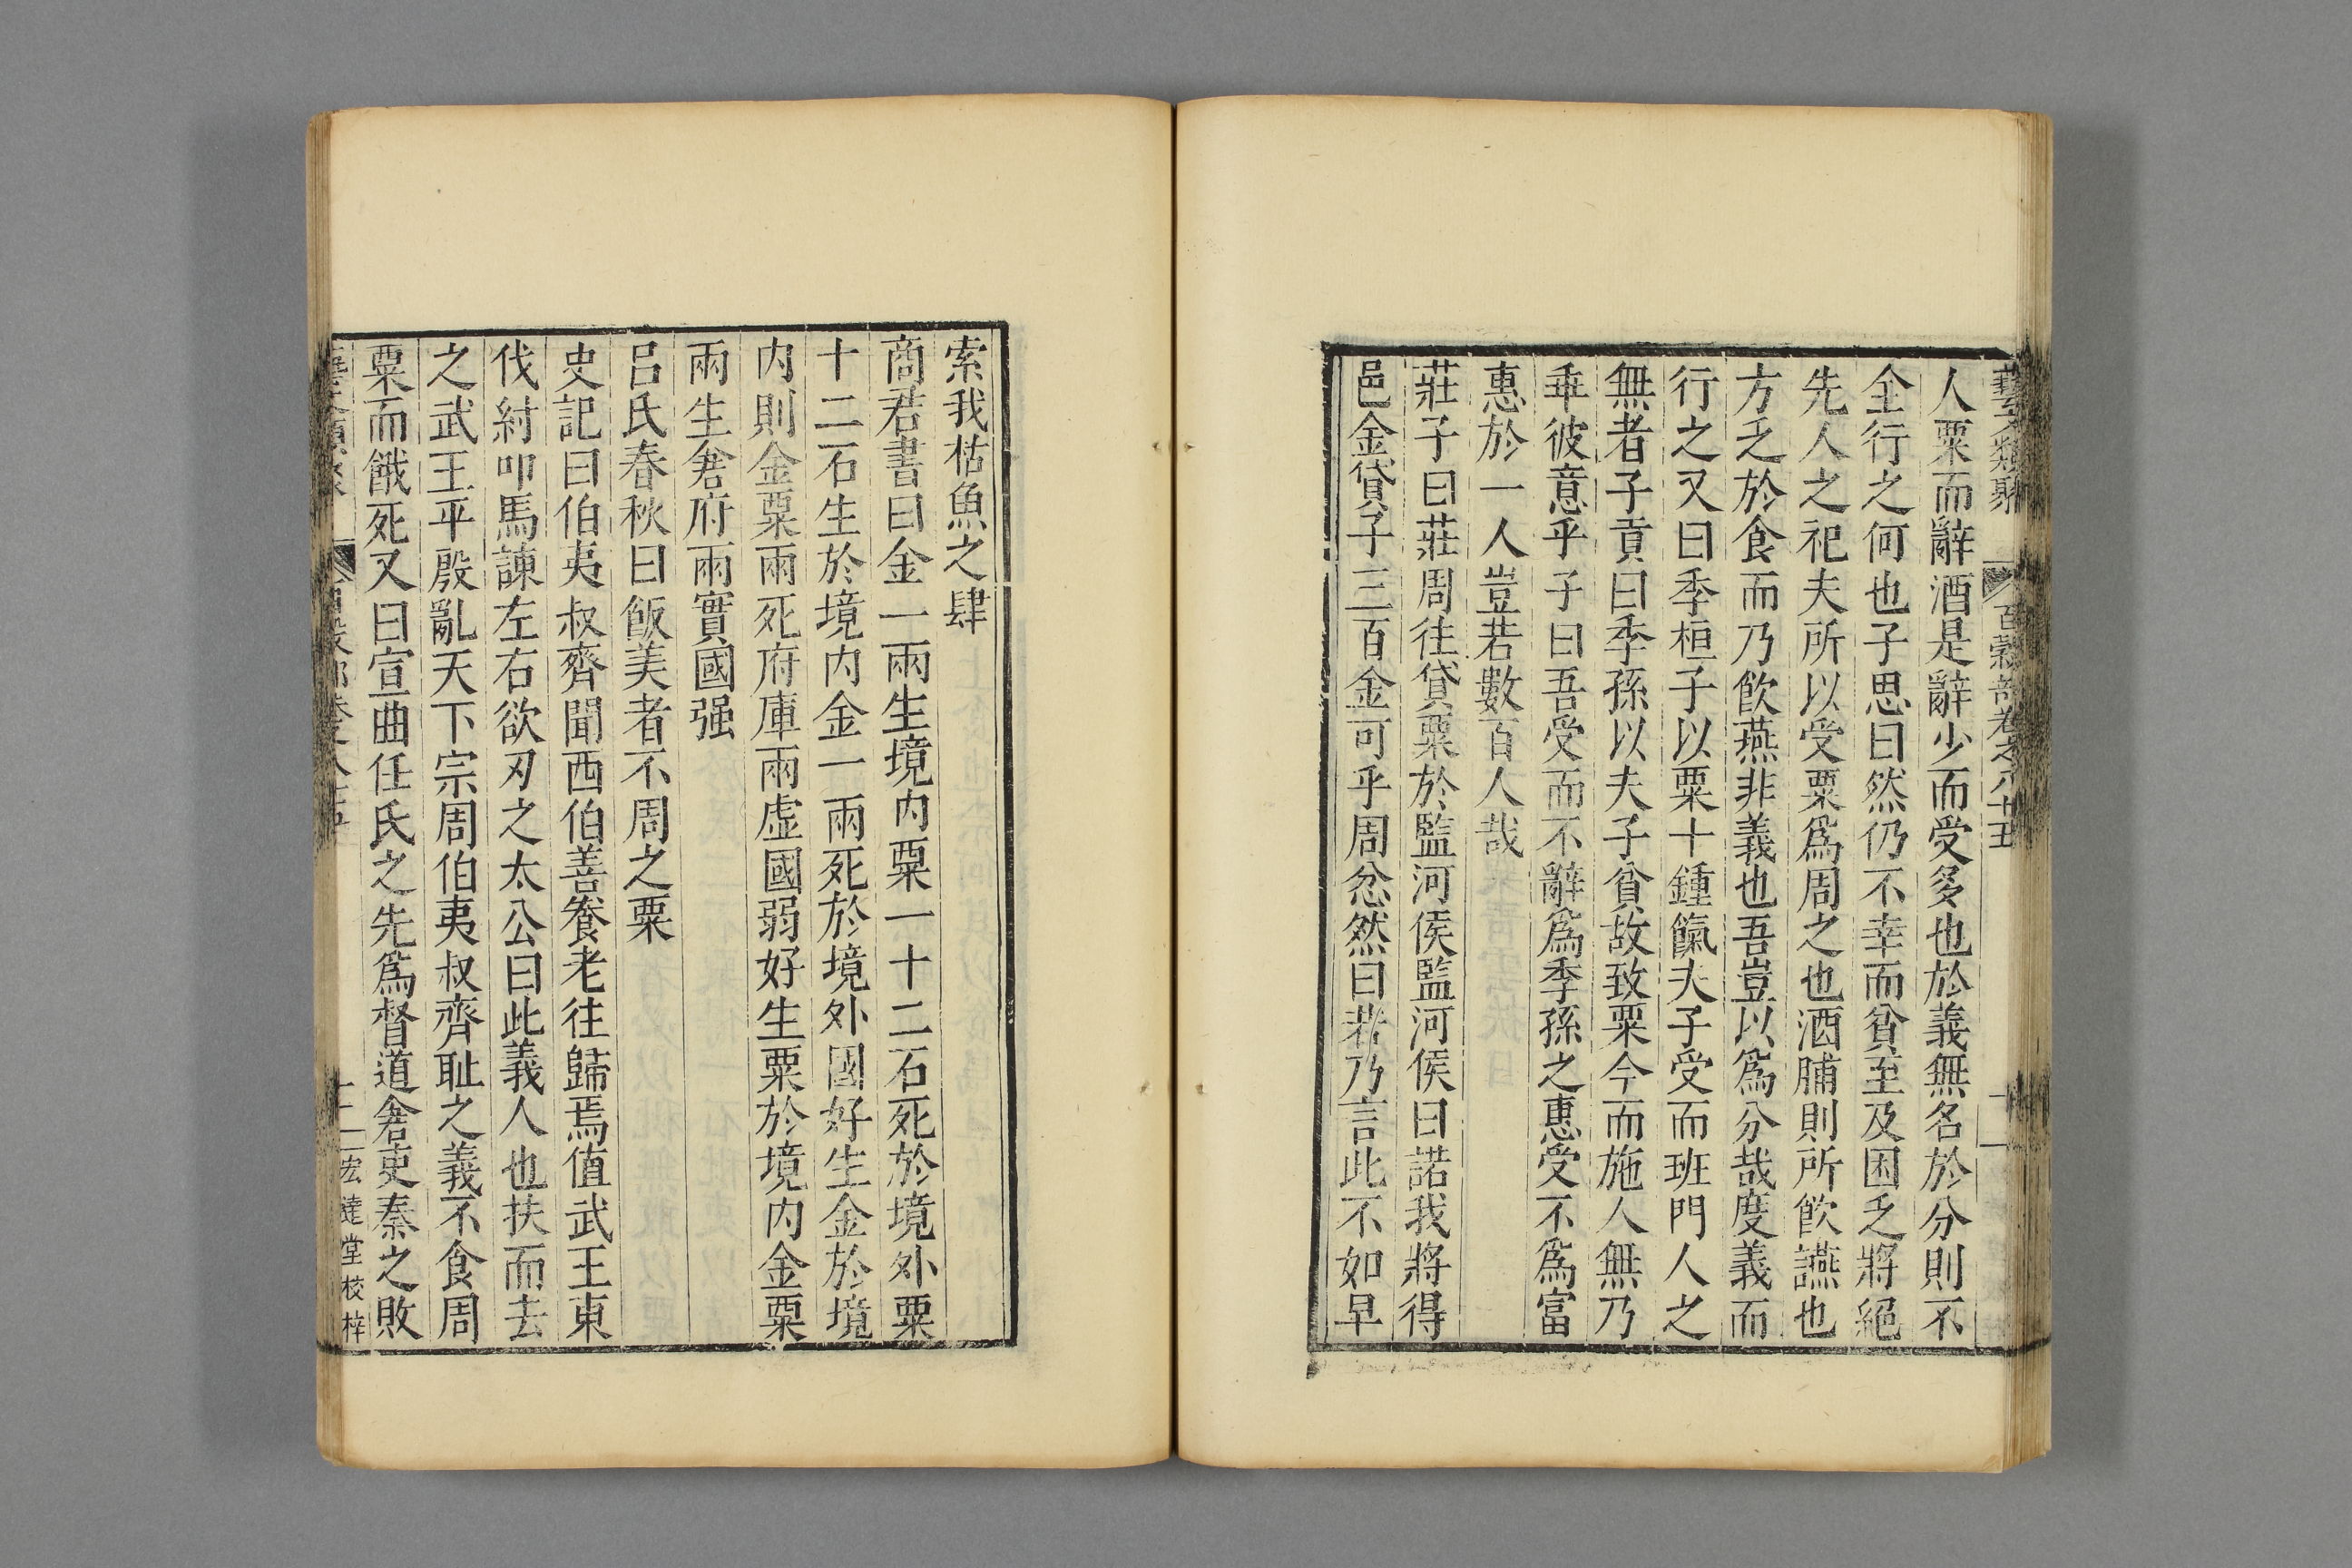 藝文類聚 百穀部卷之八十五 十一
人粟而辭酒是辭少而受多也於義無名於分則不
全行之何也子思曰然伋不幸而貧至及困乏將絕
先人之祀夫所以受粟爲周之也酒脯則所飮讌也
方乏於食而乃飮燕非義也吾豈以爲分哉度義而
行之又曰季桓子以粟十鍾餼夫子受而班門人之
無者子貢曰季孫以夫子貧故致粟今而施人無乃
乖彼意乎子曰吾受而不辭爲季孫之惠受不爲富
惠於一人豈若數百人哉
莊子曰莊周往貸粟於監河侯監河侯曰諾我將得
邑金貸子三百金可乎周忿然曰若乃言此不如早
索我枯魚之肆
商君書曰金一兩生境內粟一十二石死於境外粟
十二石生於境內金一兩死於境外國好生金於境
內則金粟兩死府庫兩虛國弱好生粟於境內金粟
兩生倉府兩實國强
呂氏春秋曰飯美者不周之粟
史記曰伯夷叔齊聞西伯善養老往歸焉值武王東
伐紂叩馬諫左右欲刃之太公曰此義人也扶而去
之武王平殷亂天下宗周伯夷叔齊耻之義不食周
粟而餓死又曰宣曲任氏之先爲督道倉吏秦之敗
宏達堂校梓